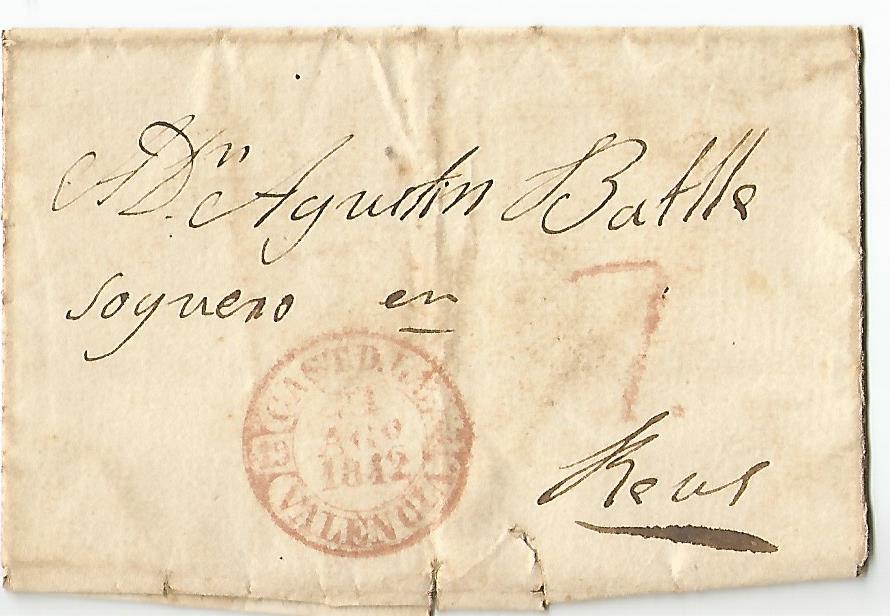 A Dn. Agustin Batlle
soguero en
7.
CAST. D. L.
AGO
1842
VALENCIA.
Reus